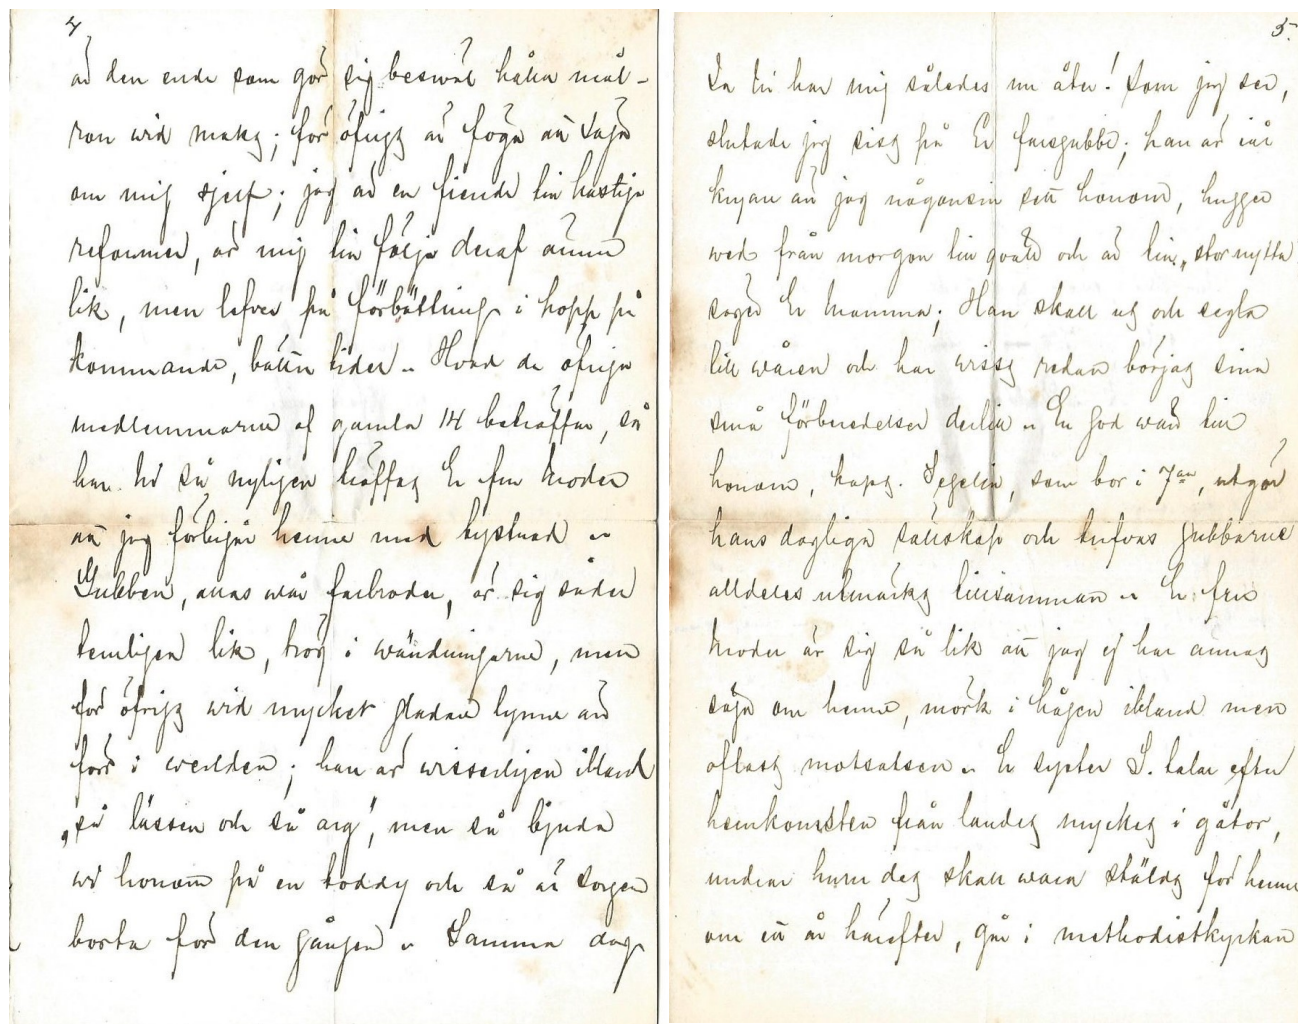 4
är den ende som gör sig beswär hålla mål-
ron wid makt; för öfrigt är föga att säga
om mig sjelf; jag är en fiende till hastiga
reformer, är mig till följe deraf ännu
lik, men lefver på förbättring i hopp på
kommande, bättre tider. Hvad de öfriga
medlemmarne af gamla 14 beträffar, så
har Ni så nyligen träffat Er fru Moder
att jag förbigår henne med tystnad.
Gubben, allas wår farbroder, är sig såder
temligen lik, trög i wändningarne, men
för öfrigt wid mycket gladare lynne än
förr i werlden; han är wisserligen ibland
„så lässen och så arg", men så bjuda
wi honom på en toddy och så är sorgen
borta för den gången. Samma dag
5.
Ja Ni har mig således nu åter! Som jag ser,
slutade jag sist på Er farsgubbe; han är i år
kryare än jag någonsin sett honom, hugger
wed från morgon till qväll och är till „stor nytta
säger Er Mamma; Han skall ut och segla
till wåren och har wisst redan börjat sina
små förberedelser dertill. En god wän till
honom, kapt. Segelin, som bor i 7an, utgör
hans dagliga sällskap och trifvas gubbarne
alldeles utmärkt tillsamman. Er fru
Moder är sig så lik att jag ej har annat
säga om henne, mörk i hågen ibland men
oftast motsatsen. Er syster S. talar efter
hemkomsten från landet mycket i gåtor,
undrar huru det skall wara stäldt för henne
om ett år härefter, går i methodistkyrkan